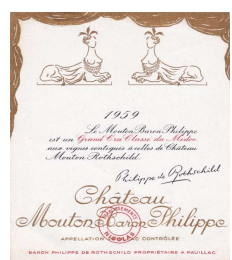 1959
Le Mouton Baron Philippe
est un Grand Cru Classé du Médoc
aux vignes contiguës à celles de Château
Mouton Rothschild.
Philippe de Rothschild
Château
Mouton Baron Philippe
NICOLAS
APPELLATION PAUILLAC CONTRÔLÉE
BARON PHILIPPE DE ROTHSCHILD PROPRIÉTAIRE A PAUILLAC